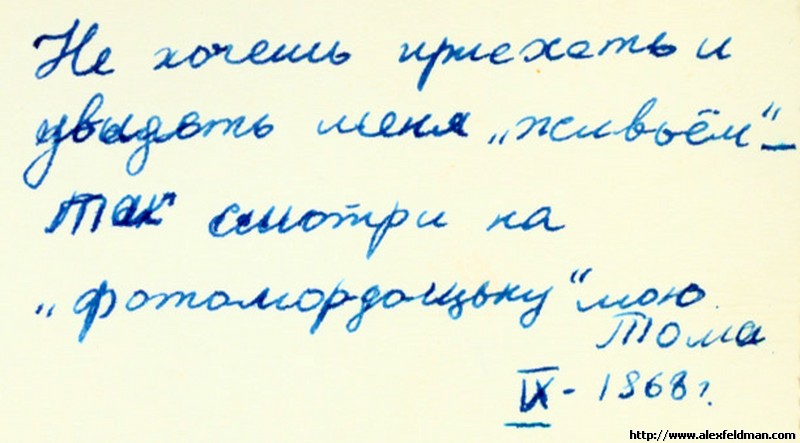 Не хочешь приехать и
увидеть меня „живьём“ –
так смотри на
„фотомордощьку“ мою.
Тома
IX - 1968 г.
http://www.alexfeldman.com